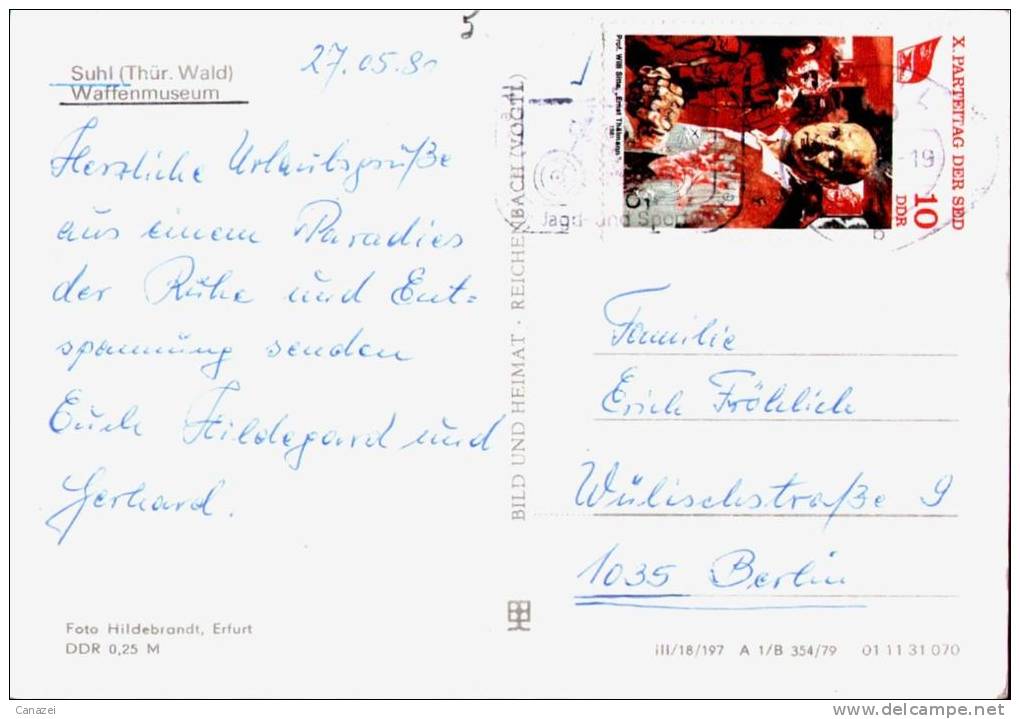 5
27.05.8
Suhl (Thür. Wald)
Waffenmuseum
Herzliche Urlaubsgrüße
aus einem Paradies
der Ruhe und Ent=
spannung senden
Euch Hildegard und
Gerhard.
Foto Hildebrandt, Erfurt
DDR 0,25 M
BILD UND HEIMAT · REICHENBACH (VOGTL)
Jagd- und Sport
-19
X. PARTEITAG DER SED
10
DDR
Prof. Willi Sitte, „Ernst Thälmann“
1981
Familie
Erich Fröhlich
Wülischstraße 9
1035 Berlin
III/18/197 A 1/B 354/79 01 11 31 070
Canazei
www.delcampe.net